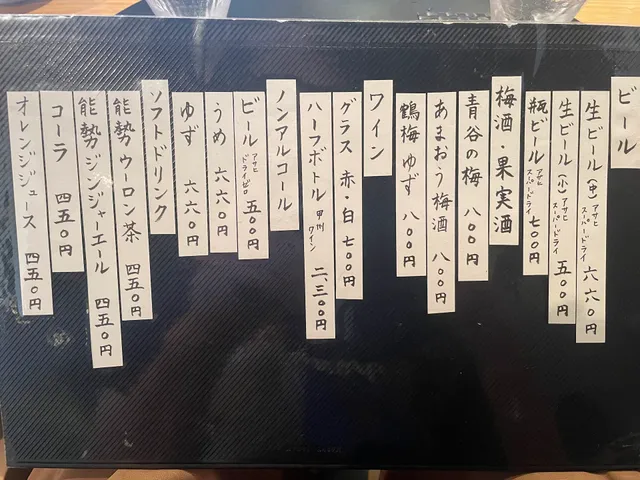 ビール
生ビール（中）アサヒスーパードライ 六六〇円
生ビール（小）アサヒスーパードライ 五〇〇円
瓶ビール アサヒスーパードライ 七〇〇円
梅酒・果実酒
青谷の梅 八〇〇円
あまおう梅酒 八〇〇円
鶴梅ゆず 八〇〇円
ワイン
グラス 赤・白 七〇〇円
ハーフボトル 甲州ワイン 二、三〇〇円
ノンアルコール
ビール アサヒドライゼロ 五〇〇円
うめ 六六〇円
ゆず 六六〇円
ソフトドリンク
能勢ウーロン茶 四五〇円
能勢ジンジャーエール 四五〇円
コーラ 四五〇円
オレンジジュース 四五〇円